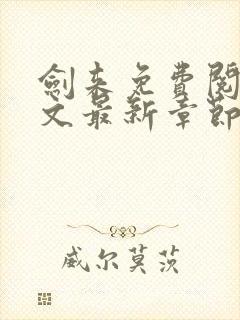 劍来免費閱
文最新章節
威尔莫茨